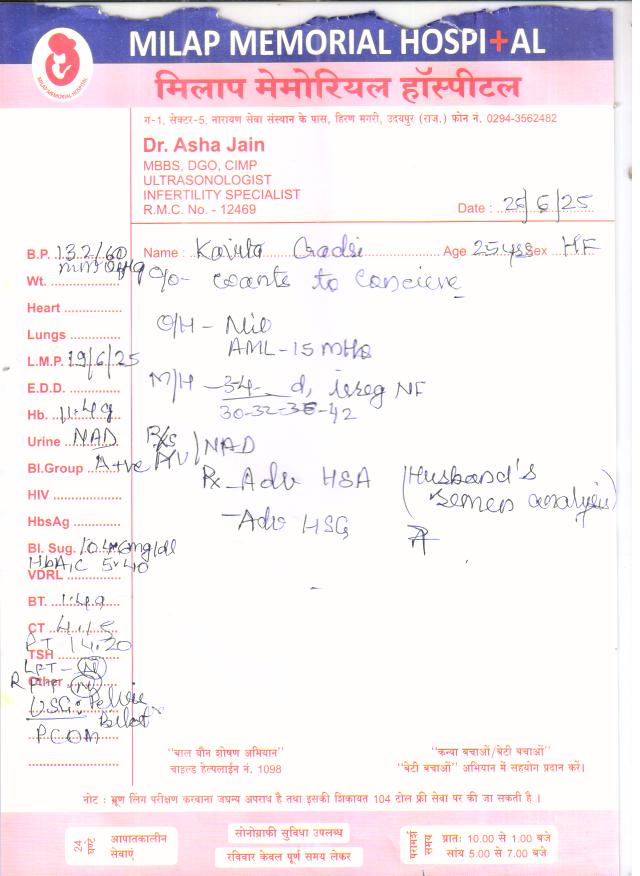 MILAP MEMORIAL HOSPITAL
मिलाप मेमोरियल हॉस्पीटल
MILAP MEMORIAL HOSPITAL
ग-1, सेक्टर-5, नारायण सेवा संस्थान के पास, हिरण मगरी, उदयपुर (राज.) फोन नं. 0294-3562482
Dr. Asha Jain
MBBS, DGO, CIMP
ULTRASONOLOGIST
INFERTILITY SPECIALIST
R.M.C. No. - 12469
Date : 25/6/25
Name : Age 25 yrs Sex HF
C/o - wants to Concieve
O/H - Nil
AML - 15 mths
M/H - 34 d, irreg NF
30-32-35-42
P/S
P/V / NAD
Rx - Adv HSA (Husband's semen analysis)
- Adv HSG
B.P. 132/60
mm of Hg
Wt.
Heart
Lungs
L.M.P. 19/6/25
E.D.D.
Hb. 11.4 g
Urine NAD
Bl.Group A+ve
HIV
HbsAg
Bl. Sug. 104.6mg/dl
HbA1C 5.40
VDRL
BT. 1.49
CT 4.15
PT 14.20
TSH
LFT - N
RFT N
Other
USG: Pelvic
Bilat
PCOM
"बाल यौन शोषण अभियान"
चाइल्ड हेल्पलाईन नं. 1098
"कन्या बचाओं/बेटी बचाओं"
"बेटी बचाओं" अभियान में सहयोग प्रदान करें।
नोट : भ्रूण लिंग परीक्षण करवाना जघन्य अपराध है तथा इसकी शिकायत 104 टोल फ्री सेवा पर की जा सकती है ।
24 घण्टे
आपातकालीन
सेवाएं
सोनोग्राफी सुविधा उपलब्ध
रविवार केवल पूर्ण समय लेकर
परामर्श समय
प्रातः 10.00 से 1.00 बजे
सांय 5.00 से 7.00 बजे